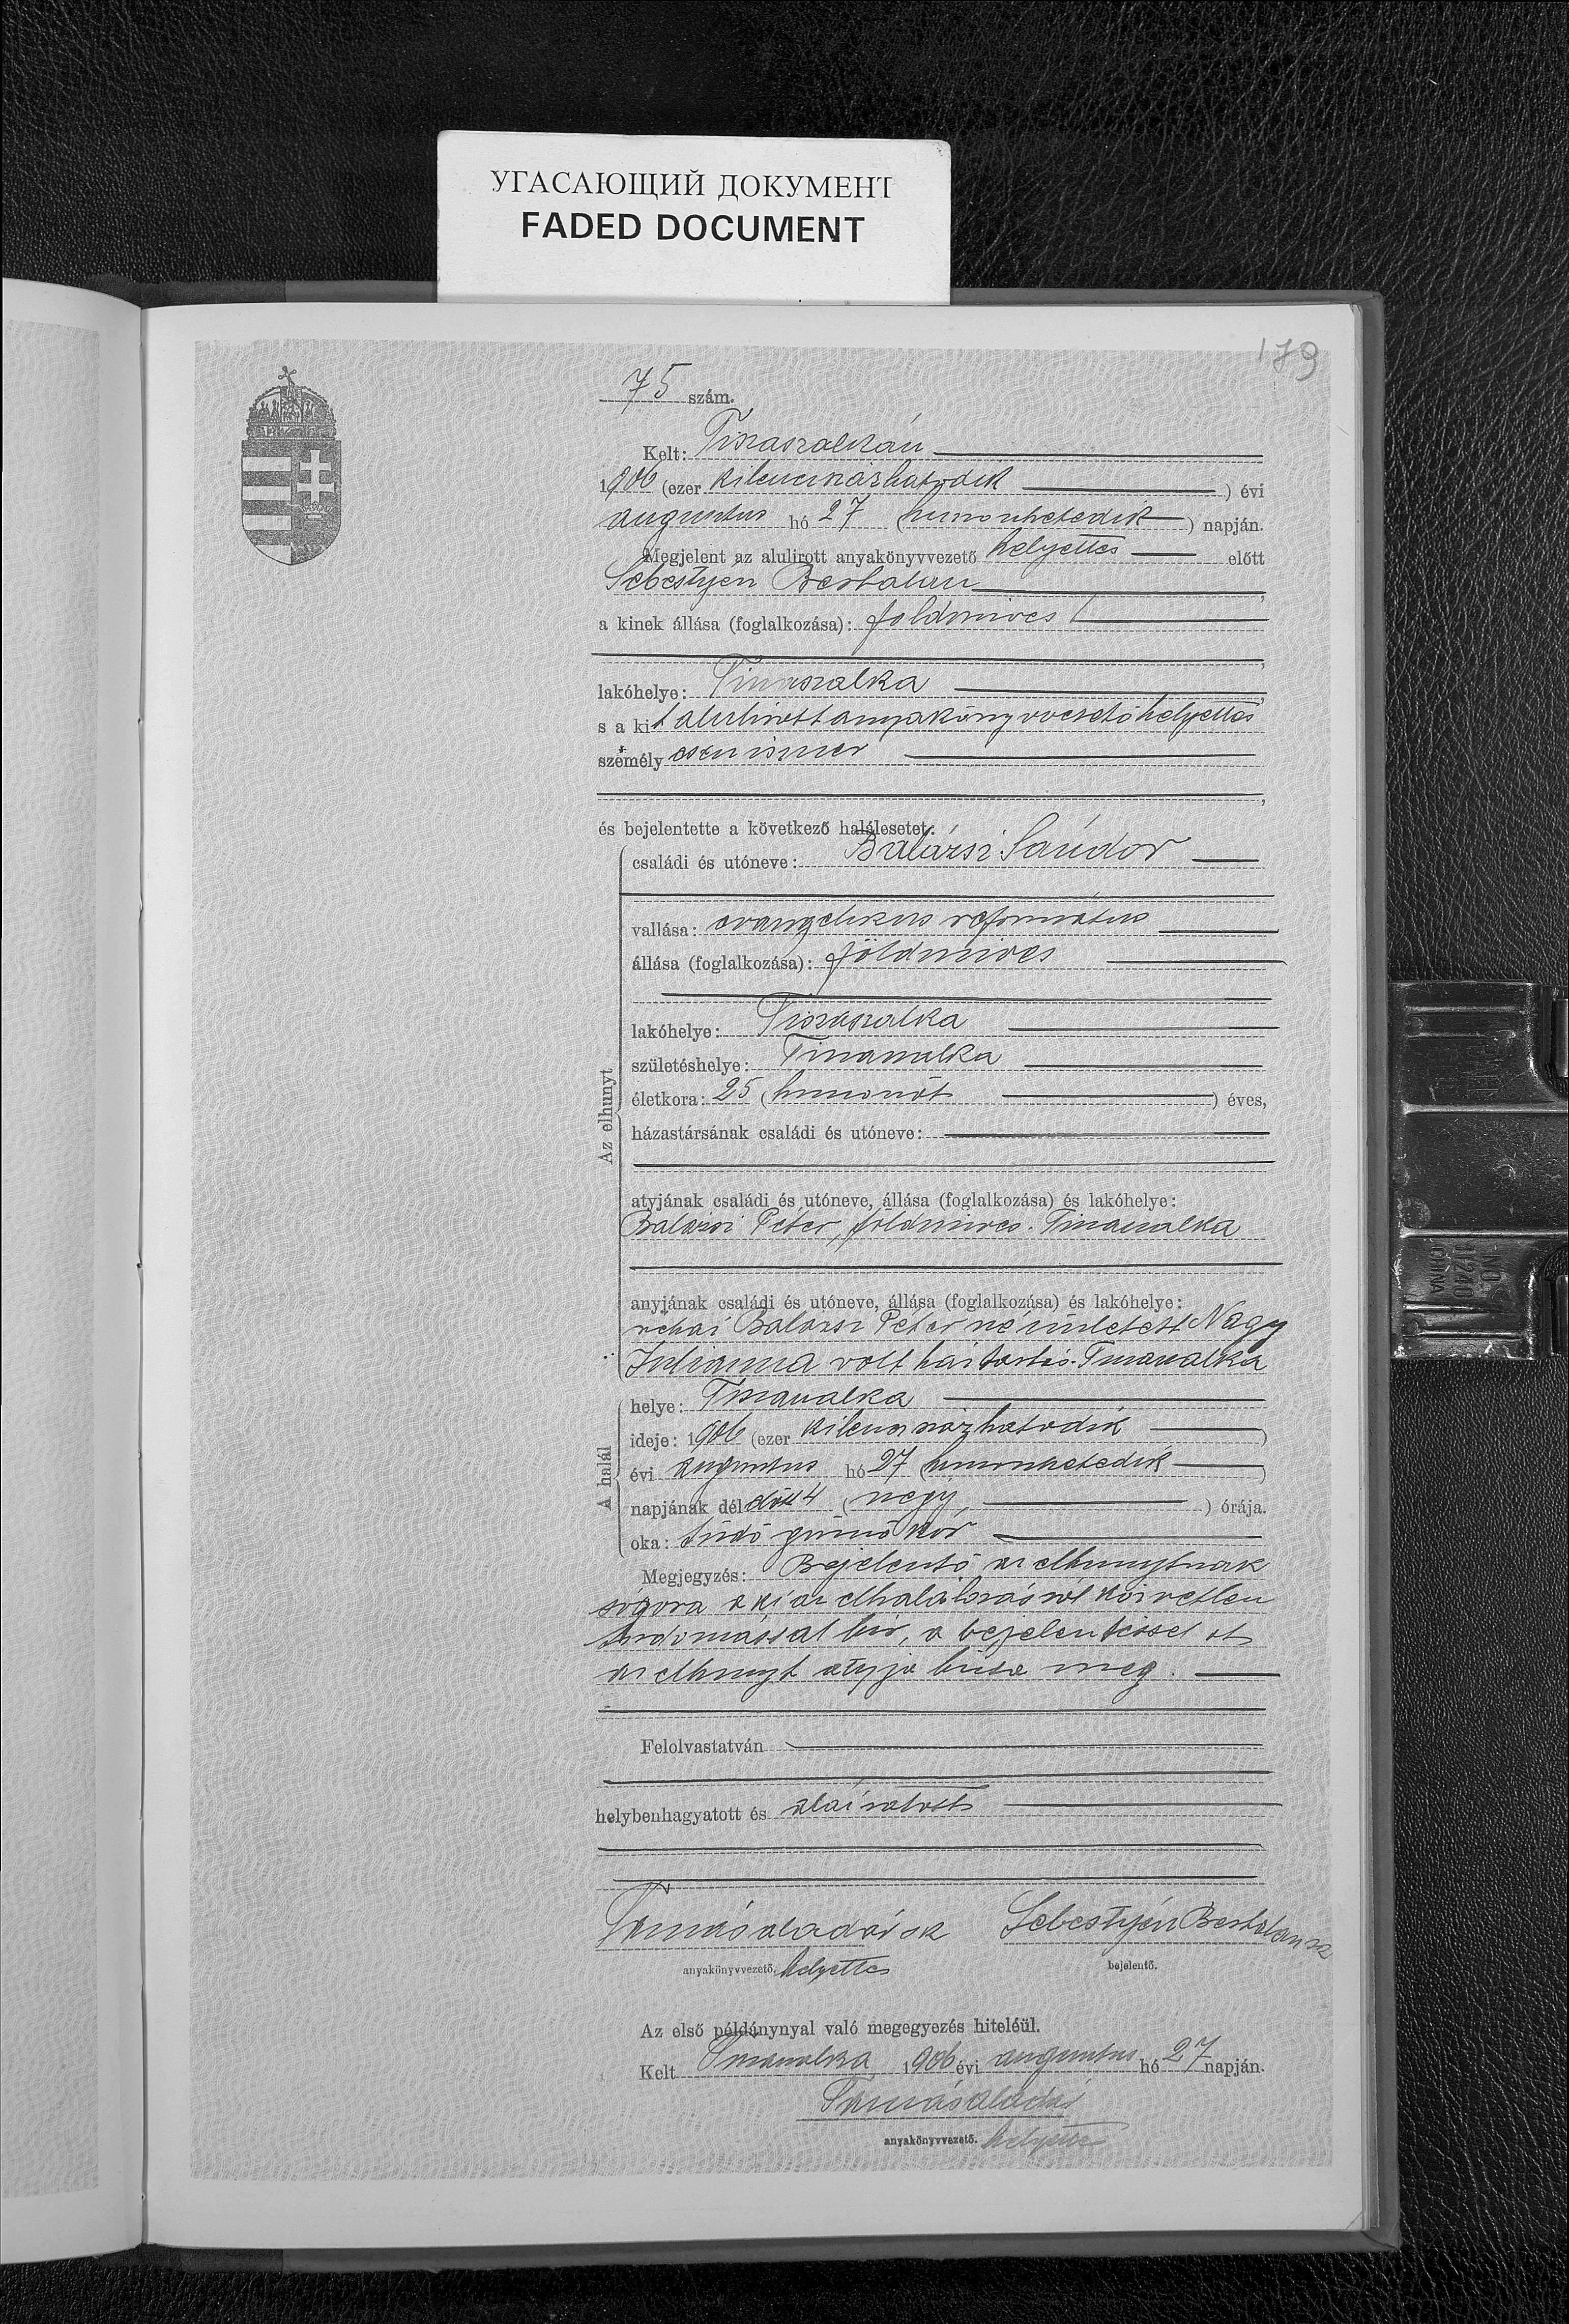 УГАСАЮЩИЙ ДОКУМЕНТ
FADED DOCUMENT
179
75 szám.
Kelt: Tiszaszalkán
1906 (ezer kilencszázhatodik) évi
augusztus hó 27 (huszonhetedik) napján.
Megjelent az alulirott anyakönyvvezető helyettes előtt
Sebestyén Bertalan,
a kinek állása (foglalkozása): földmives,
lakóhelye: Tiszaszalka,
s a kit alulirott anyakönyvvezető helyettes
személyesen ismer,
és bejelentette a következő halálesetet:
Az elhunyt
családi és utóneve: Balázsi Sándor
vallása: evangelikus református
állása (foglalkozása): földmives
lakóhelye: Tiszaszalka
születéshelye: Tiszaszalka
életkora: 25 (huszonöt) éves,
házastársának családi és utóneve:
atyjának családi és utóneve, állása (foglalkozása) és lakóhelye:
Balázsi Péter, földmives. Tiszaszalka
anyjának családi és utóneve, állása (foglalkozása) és lakóhelye:
néhai Balázsi Péterné született Nagy
Julianna volt háztartás. Tiszaszalka
A halál
helye: Tiszaszalka
ideje: 1906 (ezer kilencszázhatodik)
évi augusztus hó 27 (huszonhetedik)
napjának délelőtt 4 (négy) órája.
oka: tüdő gümőkór
Megjegyzés: Bejelentő az elhunytnak
sógora a ki az elhalálozásról közvetlen
tudomással bir, a bejelentéssel őt
az elhunyt atyja bizta meg.
Felolvastatván
helybenhagyatott és aláiratott
Tamás Aladár sk Sebestyén Bertalan sk
anyakönyvvezető, helyettes bejelentő.
Az első példánynyal való megegyezés hiteléül.
Kelt Tiszaszalka 1906 évi augusztus hó 27 napján.
Tamás Aladár
anyakönyvvezető. helyettes
NO
11240
CHINA